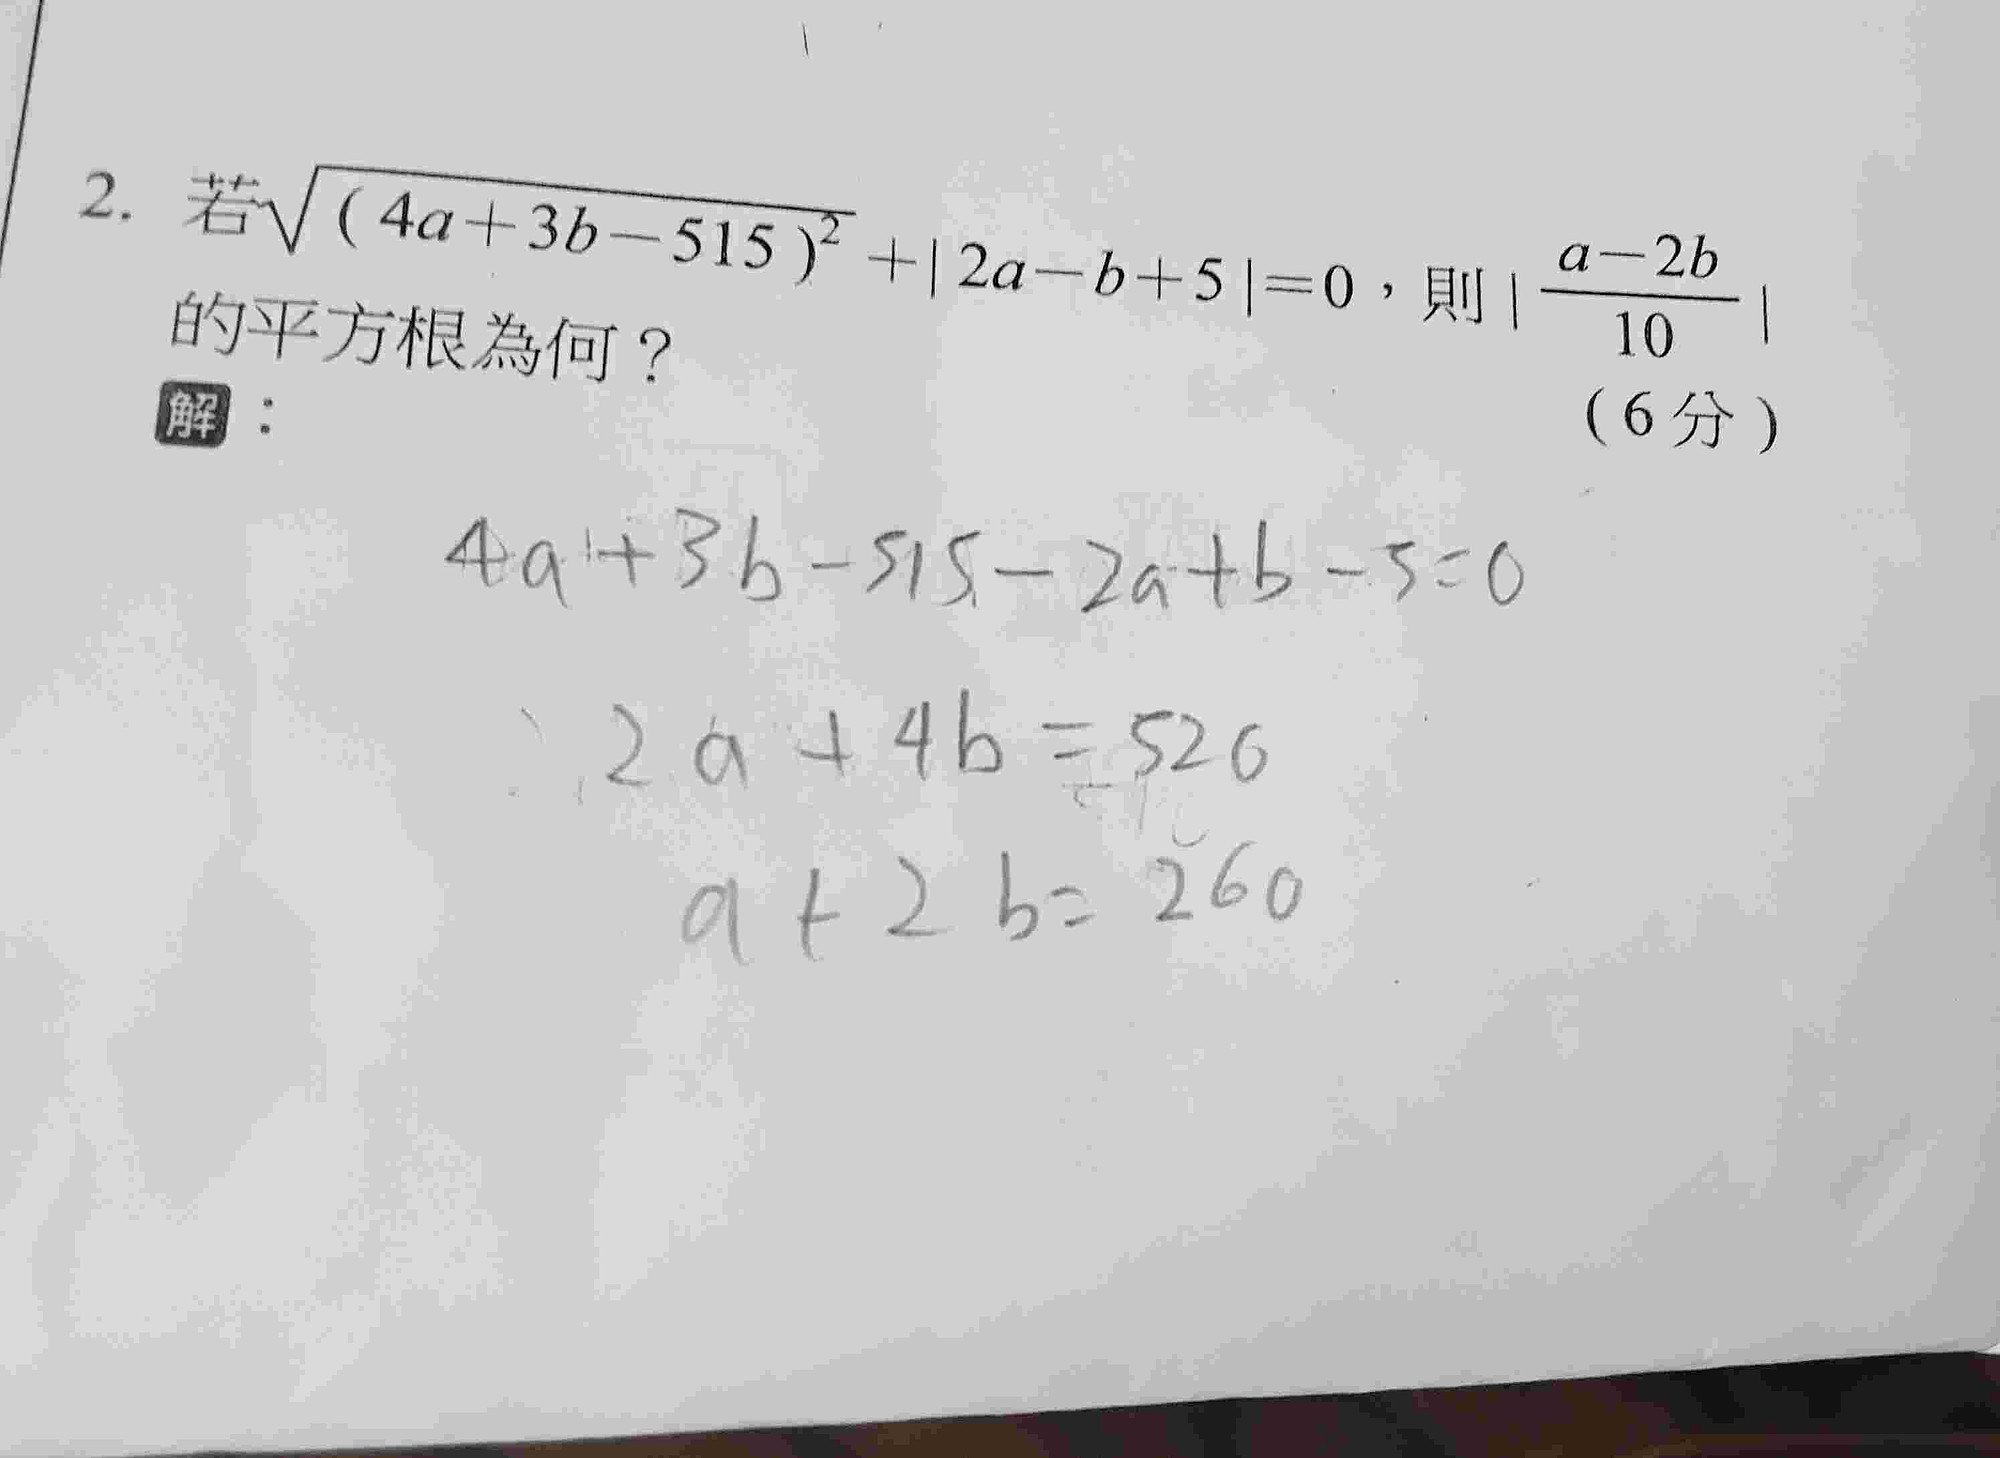 2. 若√(4a+3b−515)² +|2a−b+5|=0,則|(a−2b)/10|
的平方根為何?
(6分)
解:
4a+3b-515-2a+b-5=0
∴2a+4b=520
a+2b=260